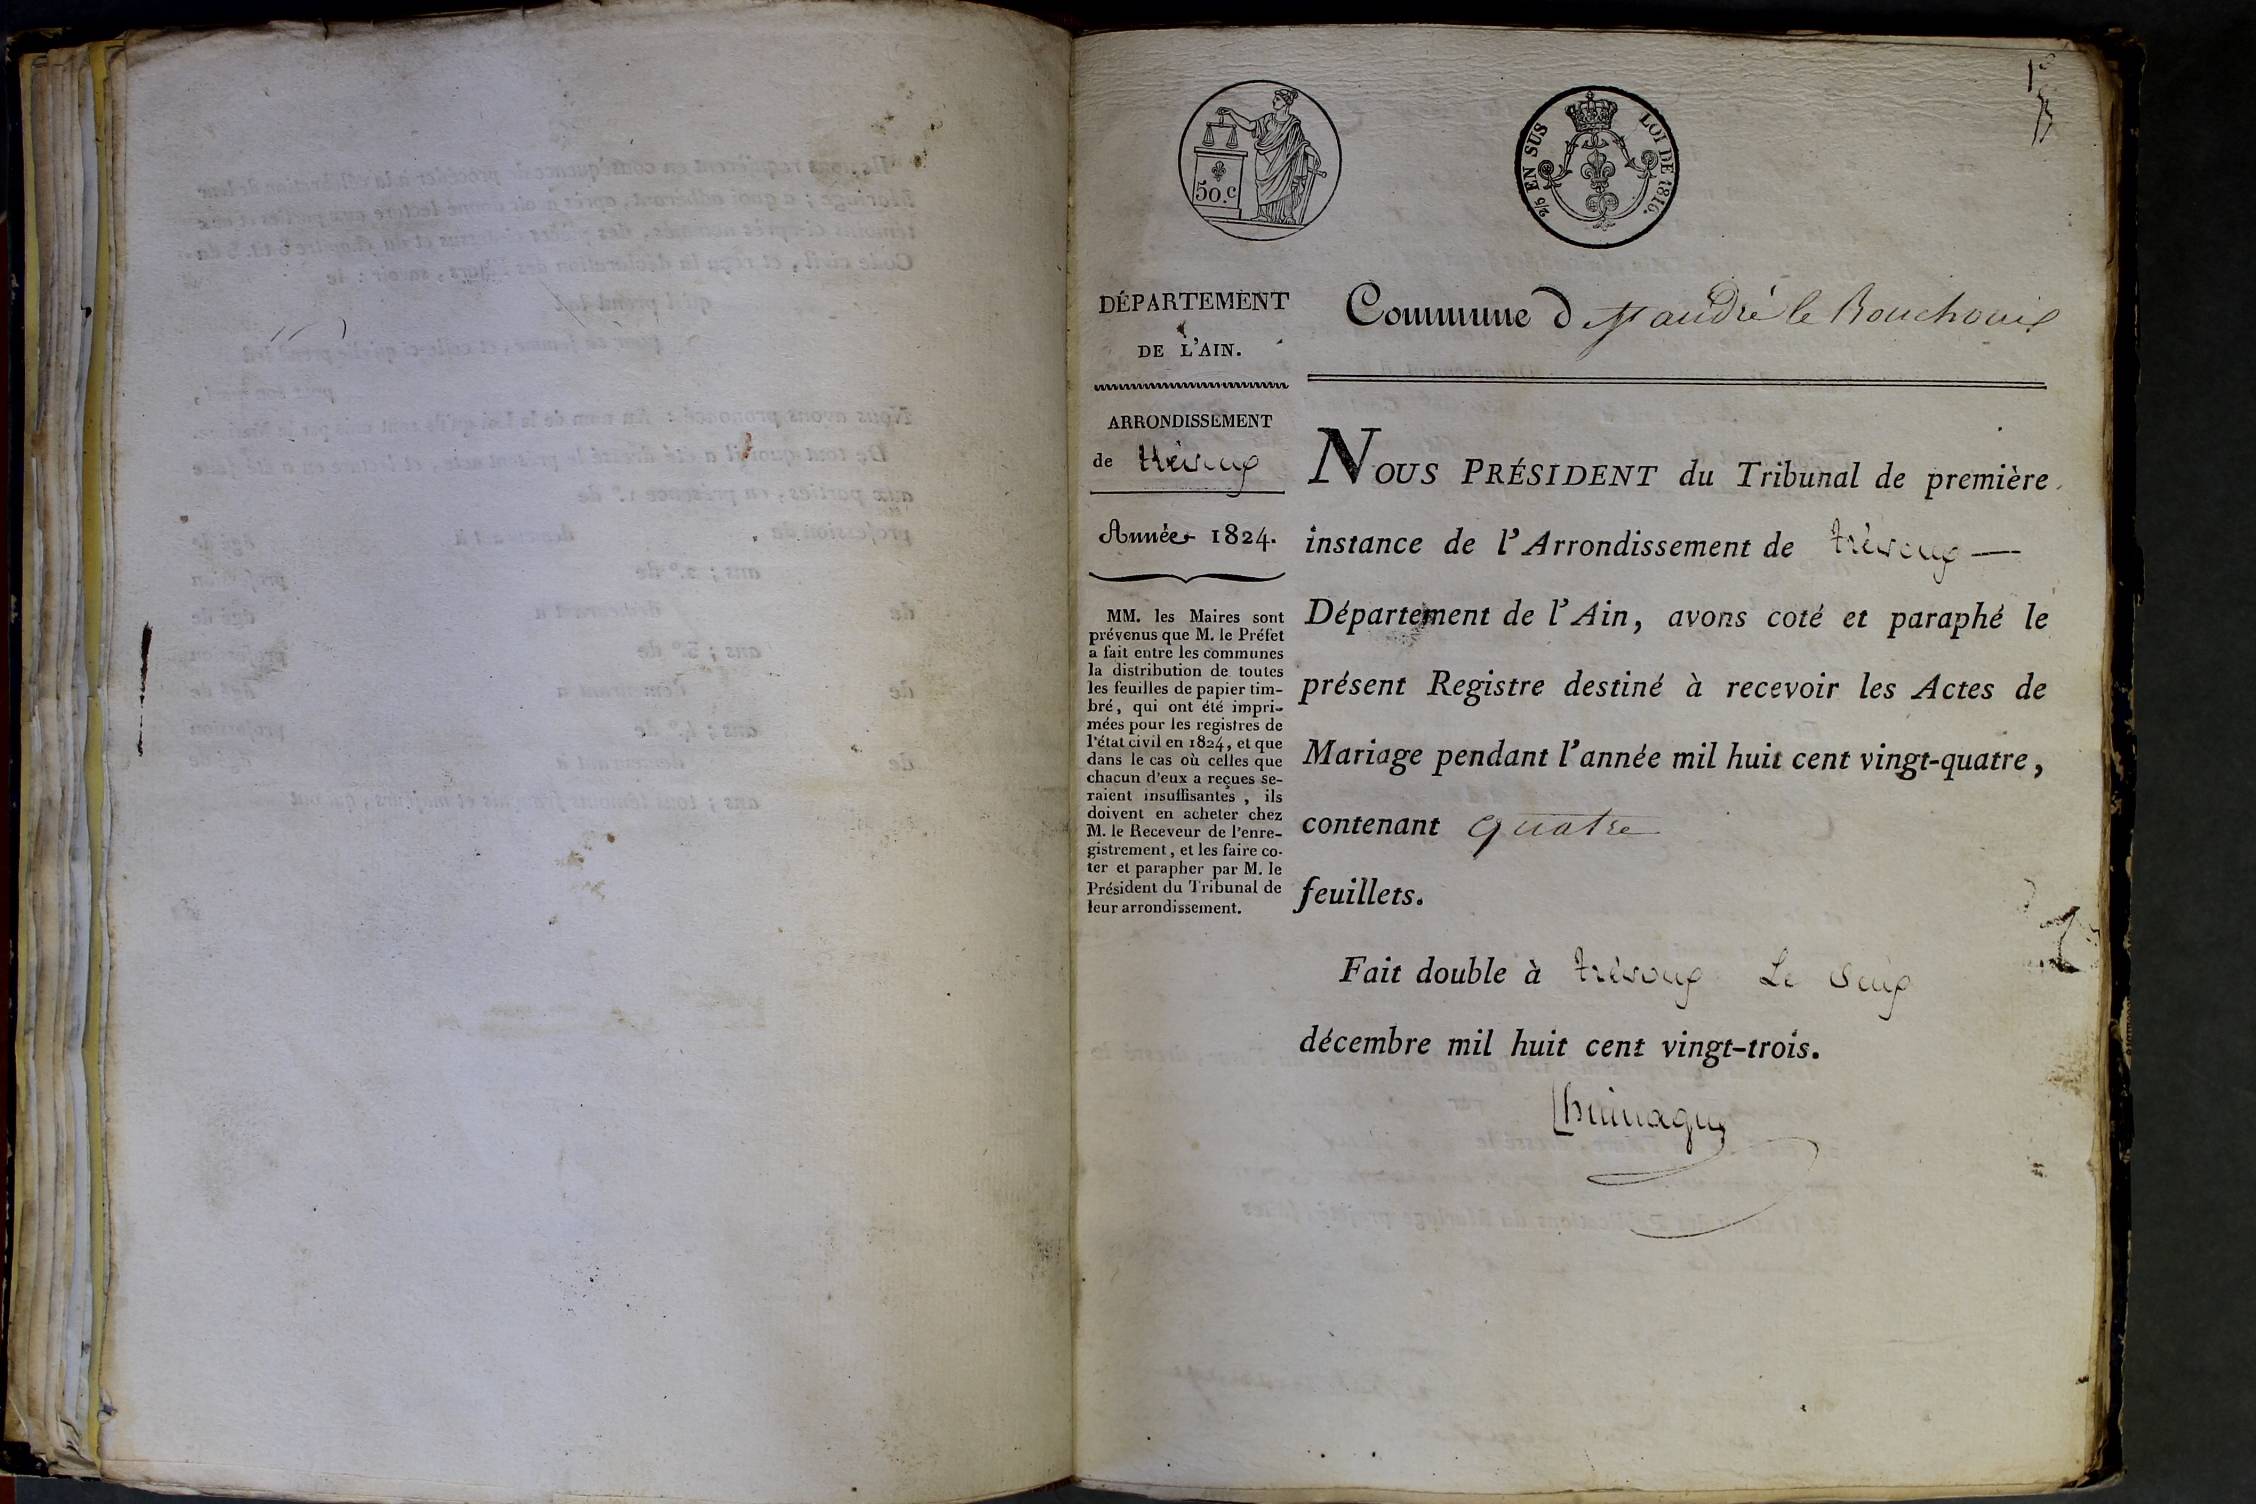 50.C
2/5 EN SUS LOI DE 1816.
DÉPARTEMENT
DE L'AIN.
ARRONDISSEMENT
de trévoux
Année 1824.
MM. les Maires sont
prévenus que M. le Préfet
a fait entre les communes
la distribution de toutes
les feuilles de papier tim-
bré, qui ont été impri-
mées pour les registres de
l'état civil en 1824, et que
dans le cas où celles que
chacun d'eux a reçues se-
raient insuffisantes, ils
doivent en acheter chez
M. le Receveur de l'enre-
gistrement, et les faire co-
ter et parapher par M. le
Président du Tribunal de
leur arrondissement.
Commune d St andré le Bouchoux
NOUS PRÉSIDENT du Tribunal de première
instance de l'Arrondissement de trévoux —
Département de l'Ain, avons coté et paraphé le
présent Registre destiné à recevoir les Actes de
Mariage pendant l'année mil huit cent vingt-quatre,
contenant quatre
feuillets.
Fait double à trévoux Le
décembre mil huit cent vingt-trois.